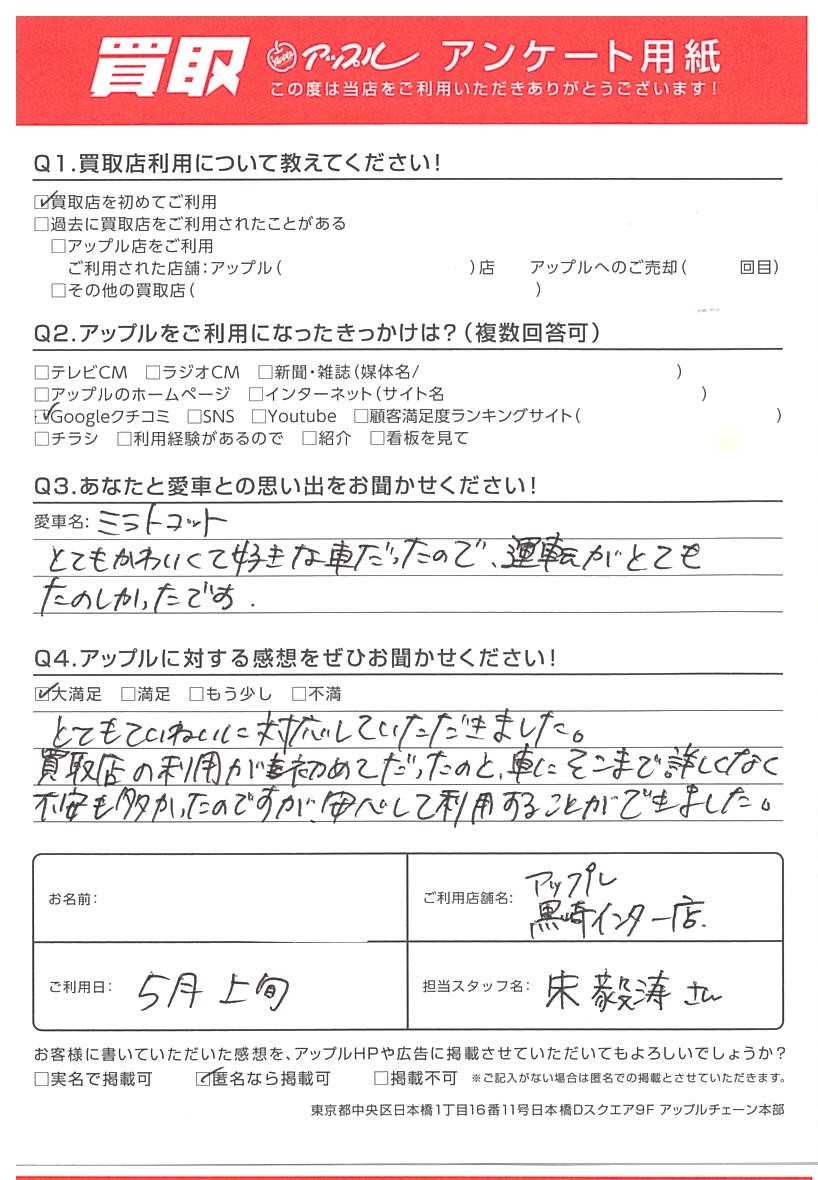 買取 Apple アップル アンケート用紙
この度は当店をご利用いただきありがとうございます!
Q1.買取店利用について教えてください!
☑買取店を初めてご利用
□過去に買取店をご利用されたことがある
□アップル店をご利用
ご利用された店舗:アップル( )店 アップルへのご売却( 回目)
□その他の買取店( )
Q2.アップルをご利用になったきっかけは?(複数回答可)
□テレビCM □ラジオCM □新聞・雑誌(媒体名/ )
□アップルのホームページ □インターネット(サイト名 )
☑Googleクチコミ □SNS □Youtube □顧客満足度ランキングサイト( )
□チラシ □利用経験があるので □紹介 □看板を見て
Q3.あなたと愛車との思い出をお聞かせください!
愛車名: ミラトコット
とてもかわいくて好きな車だったので、運転がとても
たのしかったです.
Q4.アップルに対する感想をぜひお聞かせください!
☑大満足 □満足 □もう少し □不満
とてもていねいに対応していただきました。
買取店の利用が初めてだったのと、車にそこまで詳しくなく
不安も多かったのですが、安心して利用することができました。
お名前:
ご利用店舗名: アップル
黒崎インター店.
ご利用日: 5月上旬
担当スタッフ名: 朱毅涛さん
お客様に書いていただいた感想を、アップルHPや広告に掲載させていただいてもよろしいでしょうか?
□実名で掲載可 ☑匿名なら掲載可 □掲載不可 ※ご記入がない場合は匿名での掲載とさせていただきます。
東京都中央区日本橋1丁目16番11号日本橋Dスクエア9F アップルチェーン本部